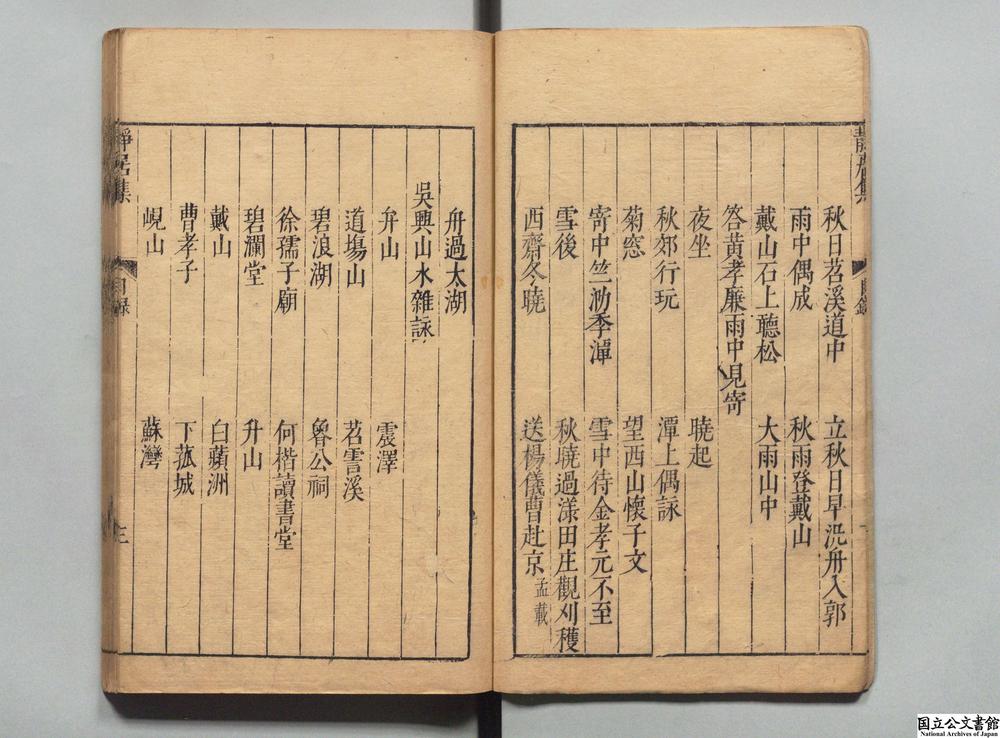 靜居集
目錄
秋日苕溪道中 立秋日早汎舟入郭
雨中偶成 秋雨登戴山
戴山石上聽松 大雨山中
答黃孝廉雨中見寄
夜坐 曉起
秋郊行玩 潭上偶詠
菊窓 望西山懷子文
寄中竺泐季潭 雪中待金孝元不至
雪後 秋曉過漾田庄觀刈穫
西齋冬曉 送楊儀曹赴京孟載
舟過太湖
吳興山水雜詠
弁山 震澤
道塲山 苕霅溪
碧浪湖 魯公祠
徐孺子廟 何楷讀書堂
碧瀾堂 升山
戴山 白蘋洲
曹孝子 下菰城
峴山 蘇灣
靜居集
目錄
三
国立公文書館
National Archives of Japan